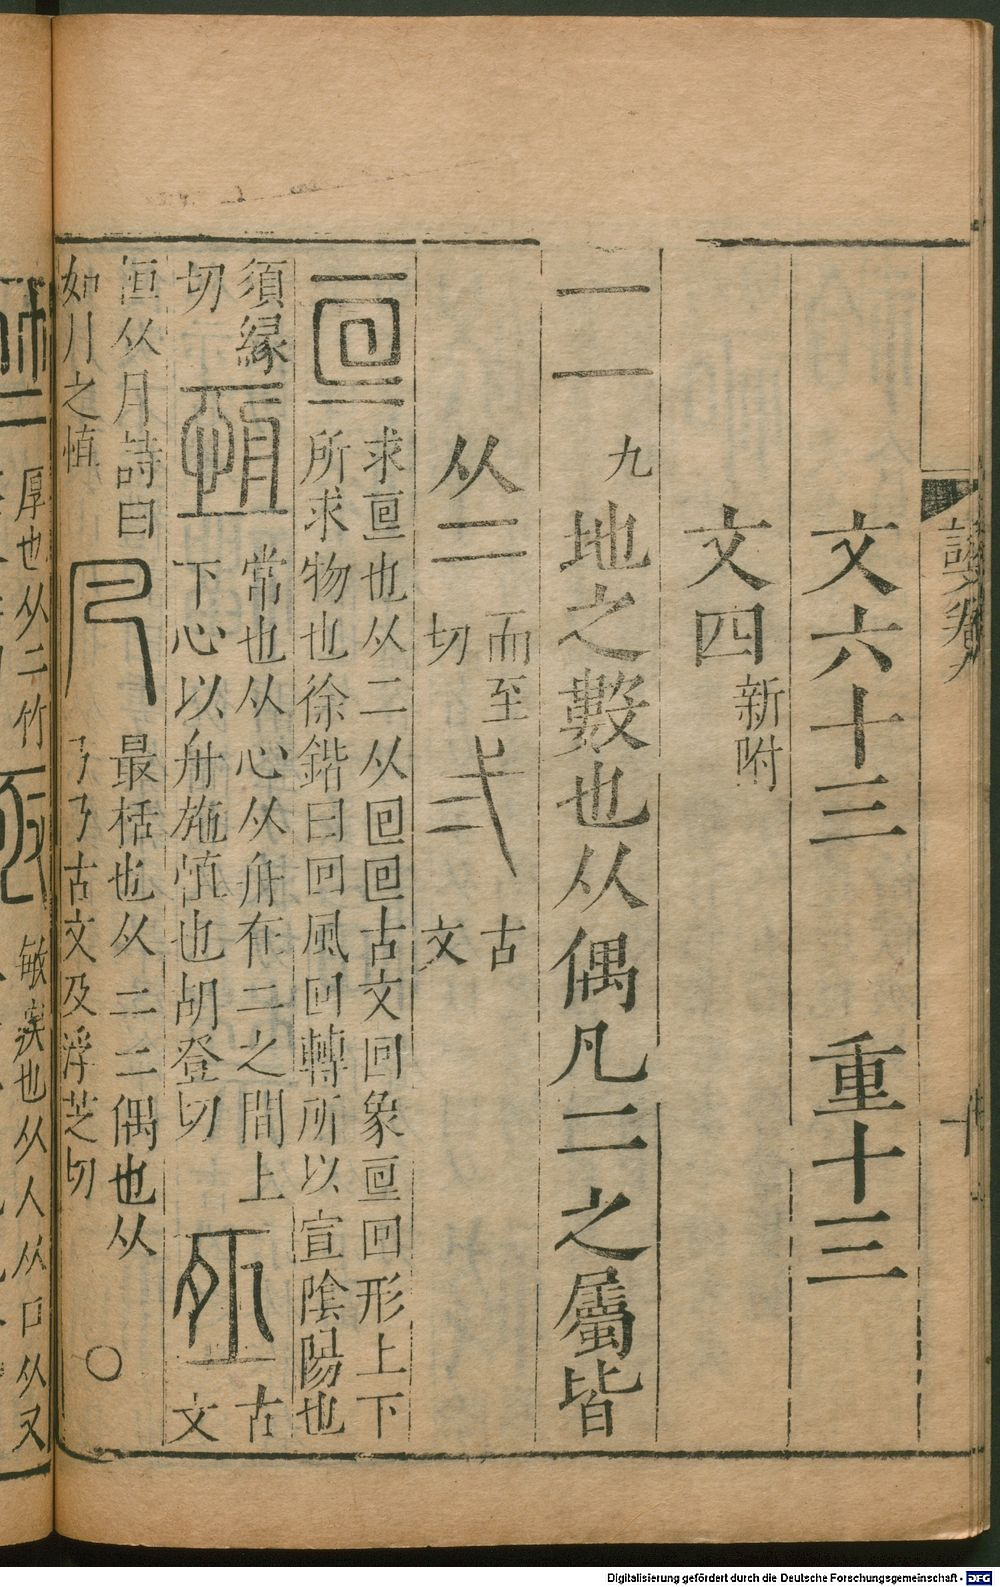 文六十三 重十三
文四 新附
二 九 地之數也从偶凡二之屬皆
从二 而至切 弍 古文
亘 求亘也从二从囘囘古文回象亘回形上下
所求物也徐鍇曰回風回轉所以宣陰陽也
須緣切 恆 常也从心从舟在二之間上
下心以舟施恆也胡登切 古文
恒从月詩曰
如月之恒
凡 最栝也从二二偶也从
乃乃古文及浮芝切 〇
竺 厚也从二竹
亟 敏疾也从人从口从又
Digitalisierung gefördert durch die Deutsche Forschungsgemeinschaft - DFG